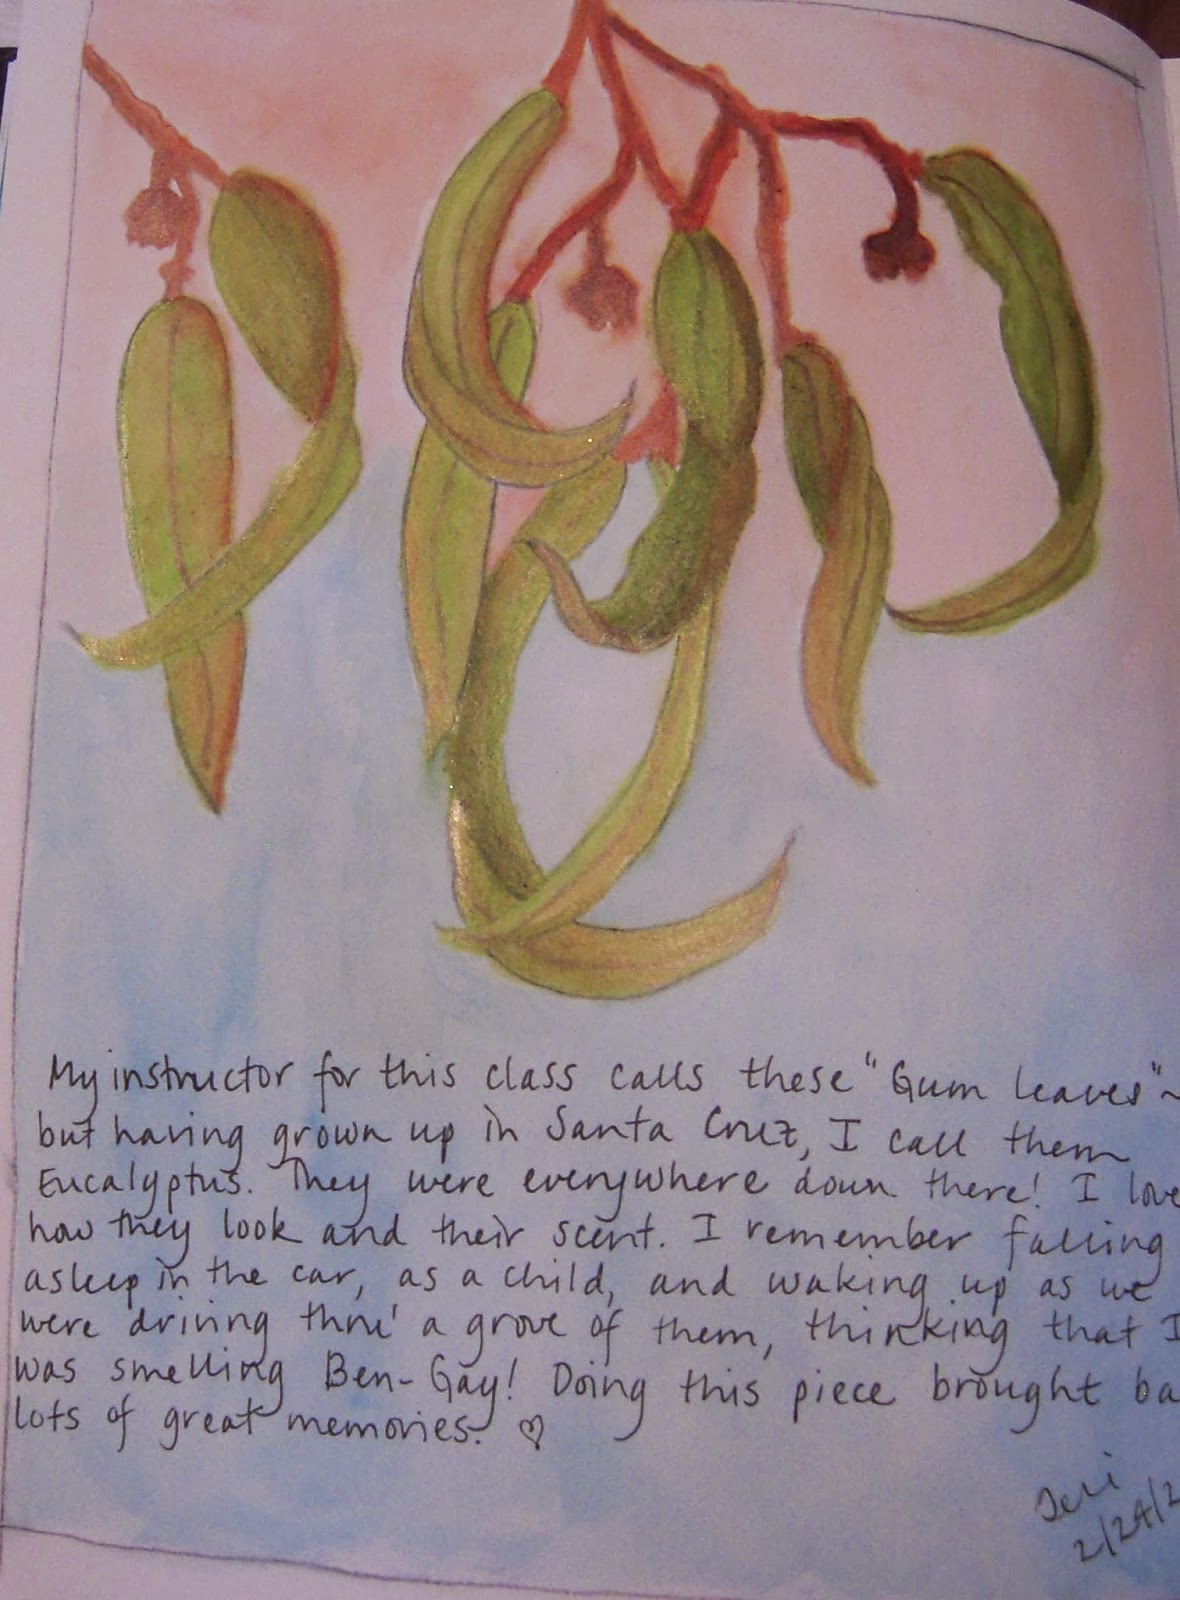 My instructor for this class calls these "Gum leaves" ~
but having grown up in Santa Cruz, I call them
Eucalyptus. They were everywhere down there! I love
how they look and their scent. I remember falling
asleep in the car, as a child, and waking up as we
were driving thru' a grove of them, thinking that I
was smelling Ben-Gay! Doing this piece brought ba
lots of great memories. ♡
Teri
2/24/2